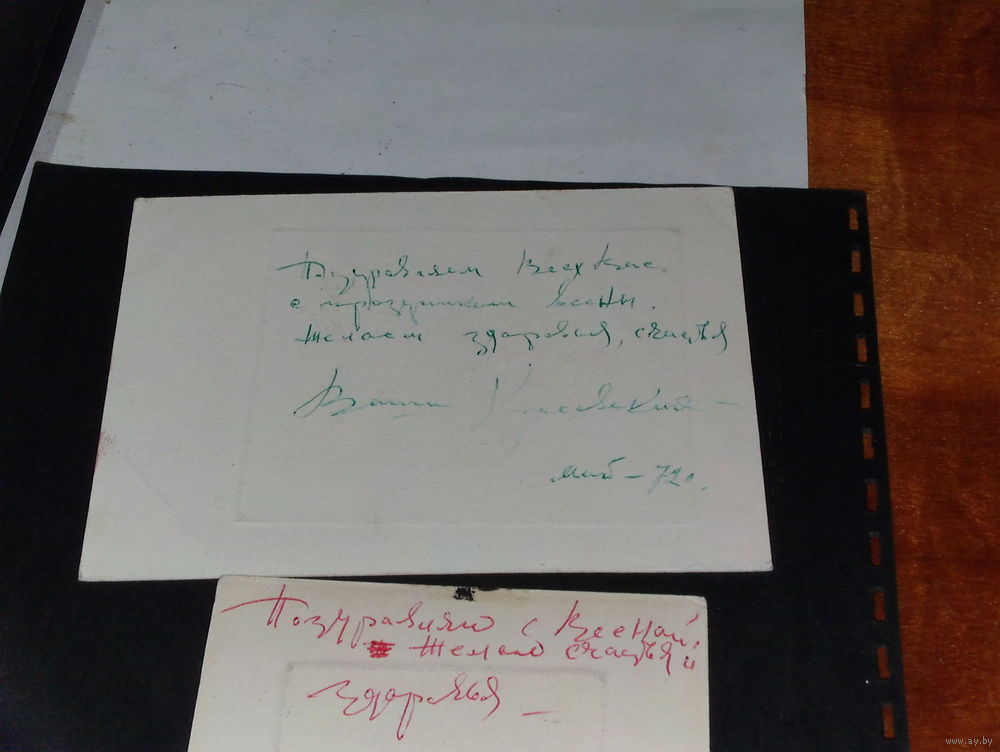 Поздравляем Всех Вас
с праздником весны.
Желаем здоровья, счастья
Ваши
май – 72г.
Поздравляю с Весной,
Желаю счастья и
здоровья
www.ay.by